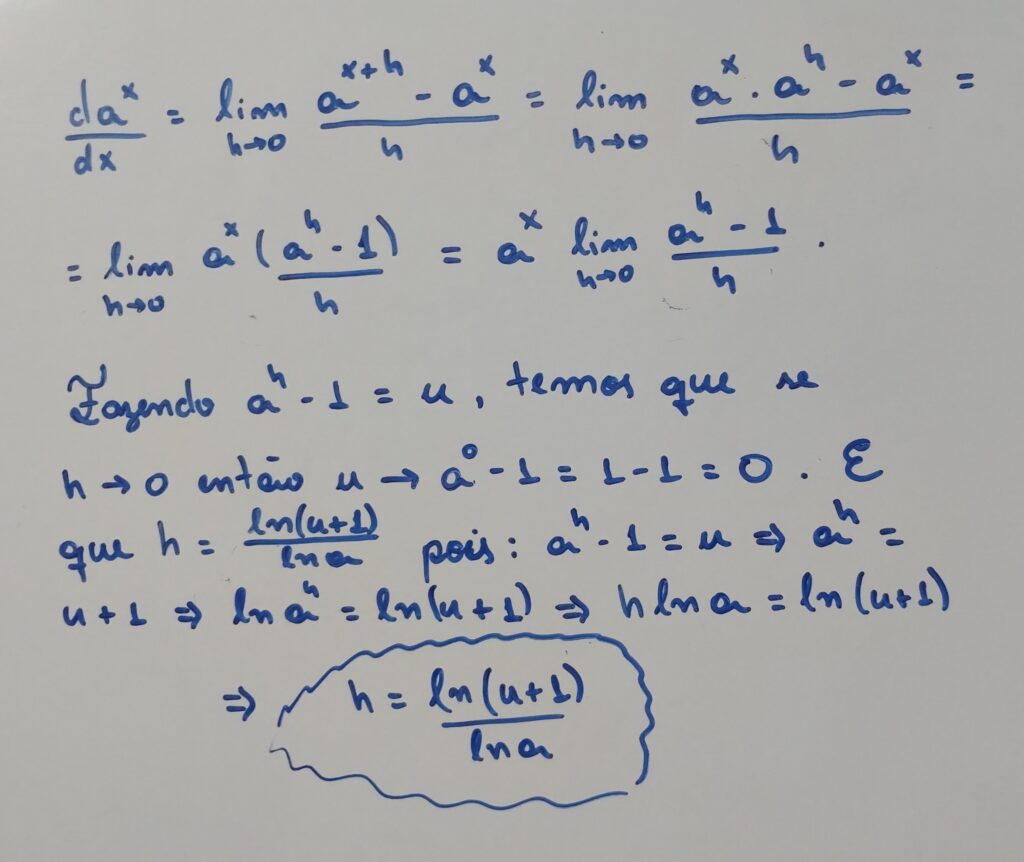 da^x/dx = lim h→0 (a^(x+h) - a^x)/h = lim h→0 (a^x . a^h - a^x)/h =
= lim h→0 a^x ((a^h - 1)/h) = a^x lim h→0 (a^h - 1)/h .
Fazendo a^h - 1 = u, temos que se
h → 0 então u → a^0 - 1 = 1 - 1 = 0 . E
que h = ln(u+1)/ln a pois: a^h - 1 = u ⇒ a^h =
u + 1 ⇒ ln a^h = ln(u+1) ⇒ h ln a = ln(u+1)
⇒ h = ln(u+1)/ln a